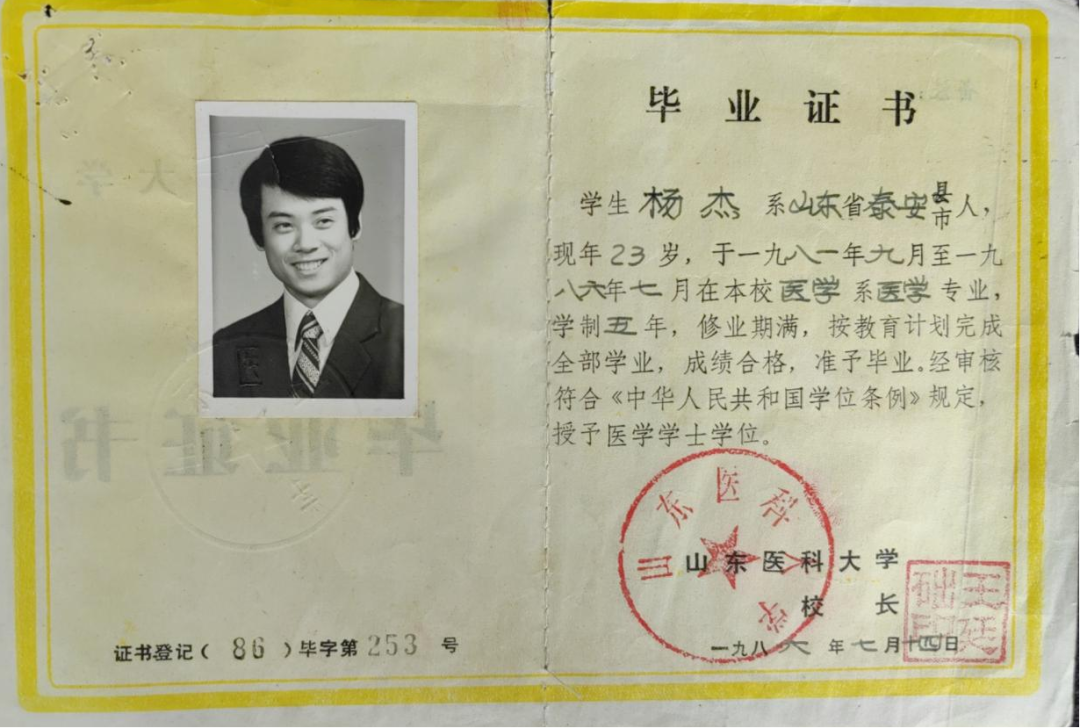 毕业证书
学生杨杰系山东省泰安县市人，
现年23岁，于一九八一年九月至一九
八六年七月在本校医学系医学专业，
学制五年，修业期满，按教育计划完成
全部学业，成绩合格，准予毕业。经审核
符合《中华人民共和国学位条例》规定，
授予医学学士学位。
山东医科大学
山东医科大学
校长
王廷础印
一九八六年七月十四日
证书登记（86）毕字第253号